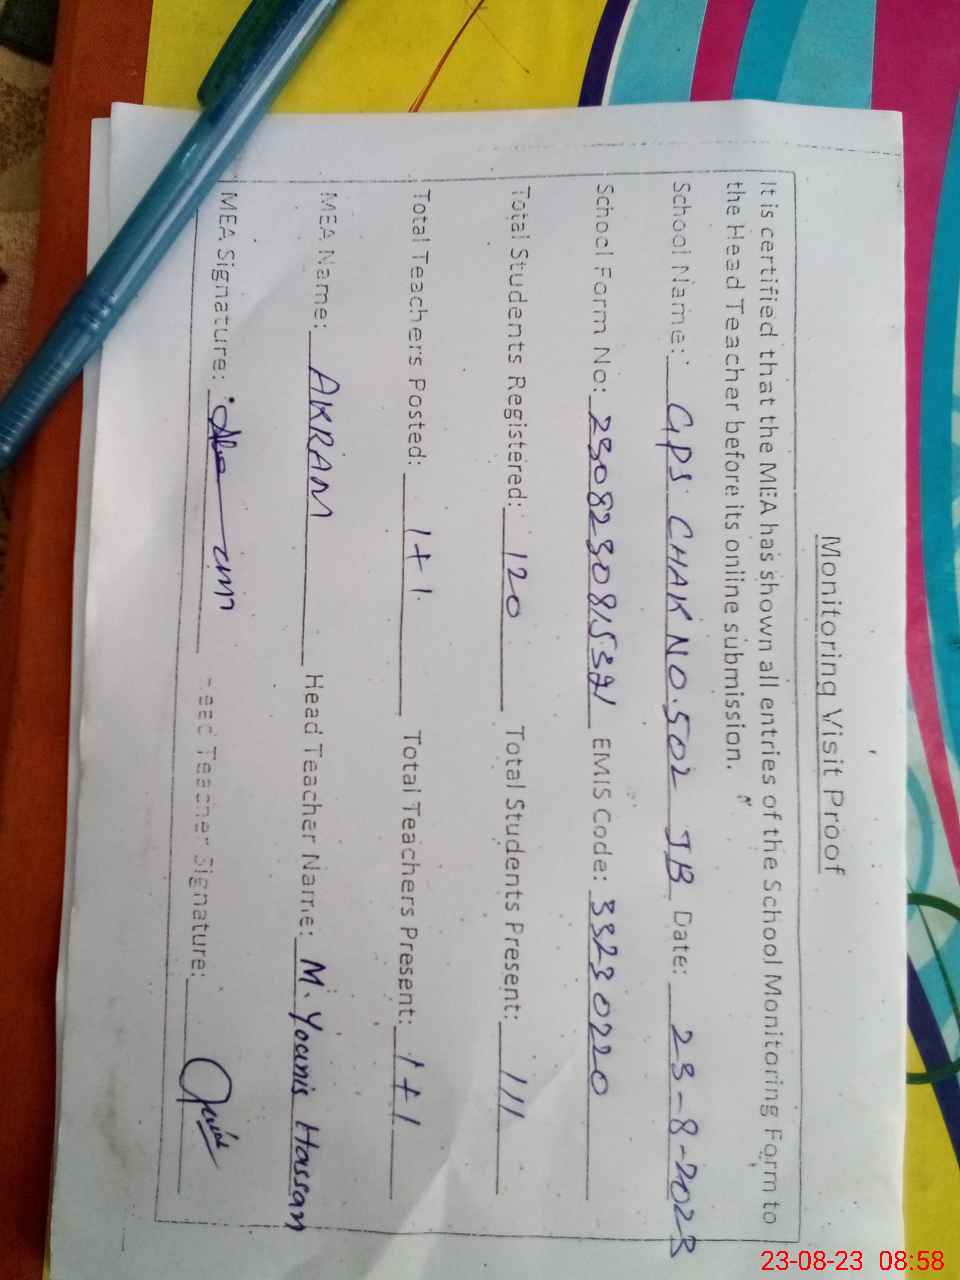 Monitoring Visit Proof
It is certified that the MEA has shown all entries of the School Monitoring Form to
the Head Teacher before its online submission.
School Name: GPS CHAK NO.502 JB Date: 23-8-2023
School Form No: EMIS Code: 33230220
Total Students Registered: 120 Total Students Present: 111
Total Teachers Posted: 1+1 Total Teachers Present: 1+1
MEA Name: AKRAM Head Teacher Name: M. Younis Hassan
MEA Signature: Head Teacher Signature:
23-08-23 08:58